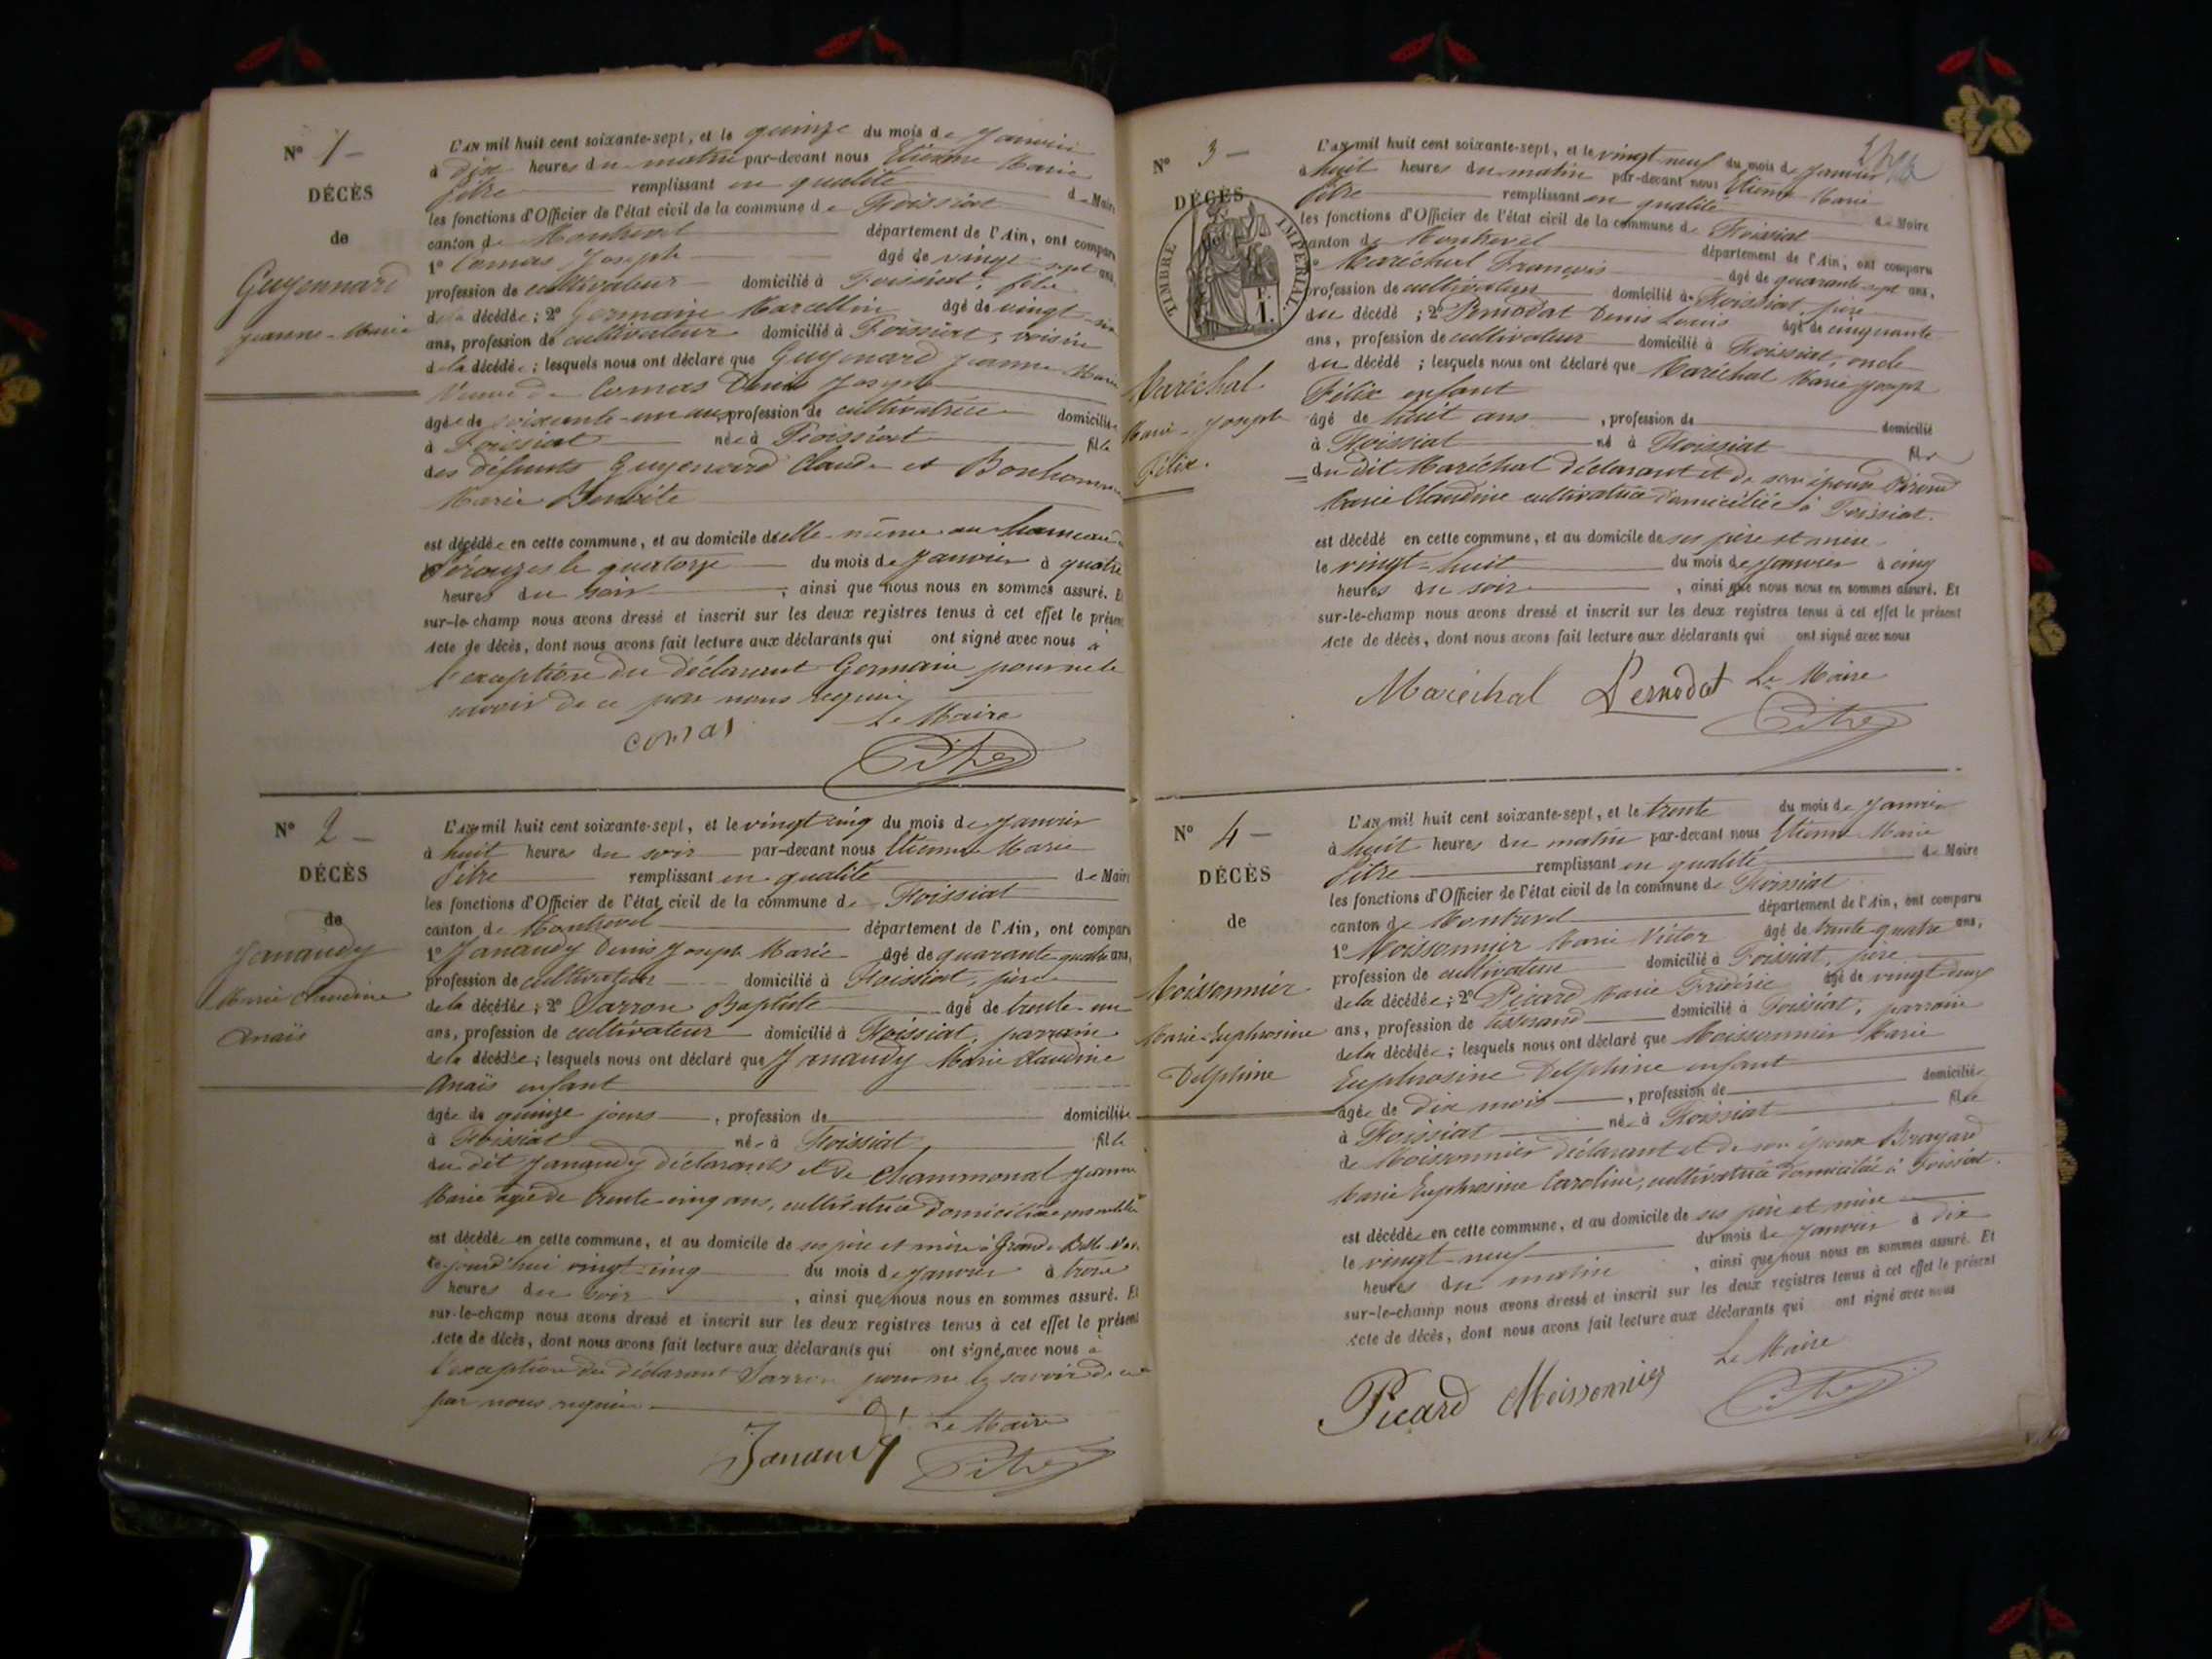 N° 1 —
DÉCÈS
de
Guyennard
Jeanne-Marie
L'AN mil huit cent soixante-sept, et le quinze du mois de Janvier
à dix heures du matin par-devant nous Etienne Marie
Pitre remplissant en qualité de Maire
les fonctions d'Officier de l'état civil de la commune de Foissiat
canton de Montrevel département de l'Ain, ont comparu
1° Comas Joseph âgé de vingt-sept ans,
profession de cultivateur domicilié à Foissiat, fils
de la décédée; 2° Germain Marcellin âgé de vingt-six
ans, profession de cultivateur domicilié à Foissiat, voisin
de la décédée; lesquels nous ont déclaré que Guyenard Jeanne Marie
Veuve de Comas Denis Joseph
âgée de soixante-un ans, profession de cultivatrice domiciliée
à Foissiat née à Foissiat fille
des défunts Guyenard Claude et Bonhomme
Marie Benoite
est décédée en cette commune, et au domicile d'elle-même au hameau de
le quatorze du mois de Janvier à quatre
heures du soir, ainsi que nous nous en sommes assuré. Et
sur-le-champ nous avons dressé et inscrit sur les deux registres tenus à cet effet le présent
Acte de décès, dont nous avons fait lecture aux déclarants qui ont signé avec nous à
l'exception du déclarant Germain pour ne le
savoir de ce par nous requis
comas Le Maire
Pitre
N° 2 —
DÉCÈS
de
Janaudy
Marie Claudine
Anaïs
L'AN mil huit cent soixante-sept, et le vingt cinq du mois de Janvier
à huit heures du soir par-devant nous Etienne Marie
Pitre remplissant en qualité de Maire
les fonctions d'Officier de l'état civil de la commune de Foissiat
canton de Montrevel département de l'Ain, ont comparu
1° Janaudy Denis Joseph Marie âgé de quarante-quatre ans,
profession de cultivateur domicilié à Foissiat, père
de la décédée; 2° Sarron Baptiste âgé de trente-un
ans, profession de cultivateur domicilié à Foissiat, parrain
de la décédée; lesquels nous ont déclaré que Janaudy Marie Claudine
Anaïs enfant
âgée de quinze jours, profession de domiciliée
à Foissiat née à Foissiat fille
du dit Janaudy déclarants et de Chammonal Jeanne
Marie agée de trente cinq ans, cultivatrice domiciliée
est décédée en cette commune, et au domicile de ses père et mère à
ce jourd'hui vingt-cinq du mois de Janvier à trois
heures du soir, ainsi que nous nous en sommes assuré. Et
sur-le-champ nous avons dressé et inscrit sur les deux registres tenus à cet effet le présent
Acte de décès, dont nous avons fait lecture aux déclarants qui ont signé avec nous à
l'exception du déclarant Sarron pour ne le savoir de ce
par nous requis
Le Maire
Janaudy Pitre
N° 3 —
DÉCÈS
TIMBRE IMPERIAL
Maréchal
Marie-Joseph
Félix.
L'AN mil huit cent soixante-sept, et le vingt neuf du mois de Janvier
à huit heures du matin par-devant nous Etienne Marie
Pitre remplissant en qualité de Maire
les fonctions d'Officier de l'état civil de la commune de Foissiat
canton de Montrevel département de l'Ain, ont comparu
1° Maréchal François âgé de quarante-sept ans,
profession de cultivateur domicilié à Foissiat, père
du décédé; 2° Pernodat Denis Louis âgé de cinquante
ans, profession de cultivateur domicilié à Foissiat, oncle
du décédé; lesquels nous ont déclaré que Maréchal Marie Joseph
Félix enfant
âgé de huit ans, profession de domicilié
à Foissiat né à Foissiat fils
du dit Maréchal déclarant et de son épouse
Marie Claudine cultivatrice domiciliée à Foissiat.
est décédé en cette commune, et au domicile de ses père et mère
le vingt-huit du mois de Janvier à cinq
heures du soir, ainsi que nous nous en sommes assuré. Et
sur-le-champ nous avons dressé et inscrit sur les deux registres tenus à cet effet le présent
Acte de décès, dont nous avons fait lecture aux déclarants qui ont signé avec nous
Maréchal Pernodat Le Maire
Pitre
N° 4 —
DÉCÈS
de
Moissonnier
Marie-Euphrosine
Delphine
L'AN mil huit cent soixante-sept, et le trente du mois de Janvier
à huit heures du matin par-devant nous Etienne Marie
Pitre remplissant en qualité de Maire
les fonctions d'Officier de l'état civil de la commune de Foissiat
canton de Montrevel département de l'Ain, ont comparu
1° Moissonnier Marie Victor âgé de trente-quatre ans,
profession de cultivateur domicilié à Foissiat, père
de la décédée; 2° Picard Marie Frédéric âgé de vingt-deux
ans, profession de tisserand domicilié à Foissiat, parrain
de la décédée; lesquels nous ont déclaré que Moissonnier Marie
Euphrosine Delphine enfant
âgée de dix mois, profession de domiciliée
à Foissiat née à Foissiat fille
de Moissonnier déclarant et de son épouse Borayard
Marie Euphrosine Caroline, cultivatrice domiciliée à Foissiat.
est décédée en cette commune, et au domicile de ses père et mère
le vingt-neuf du mois de Janvier à dix
heures du matin, ainsi que nous nous en sommes assuré. Et
sur-le-champ nous avons dressé et inscrit sur les deux registres tenus à cet effet le présent
Acte de décès, dont nous avons fait lecture aux déclarants qui ont signé avec nous
Le Maire
Picard Moissonnier Pitre